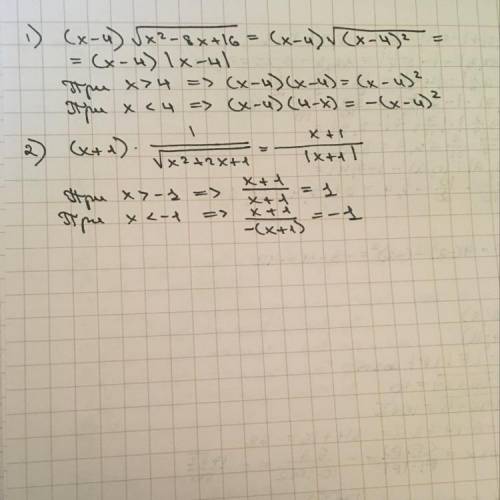 1) (x-4) √(x²-8x+16) = (x-4)√((x-4)²) =
= (x-4) |x-4|
При x>4 => (x-4)(x-4) = (x-4)²
При x<4 => (x-4)(4-x) = -(x-4)²
2) (x+1) · 1/√(x²+2x+1) = (x+1)/|x+1|
При x>-1 => (x+1)/(x+1) = 1
При x<-1 => (x+1)/(-(x+1)) = -1